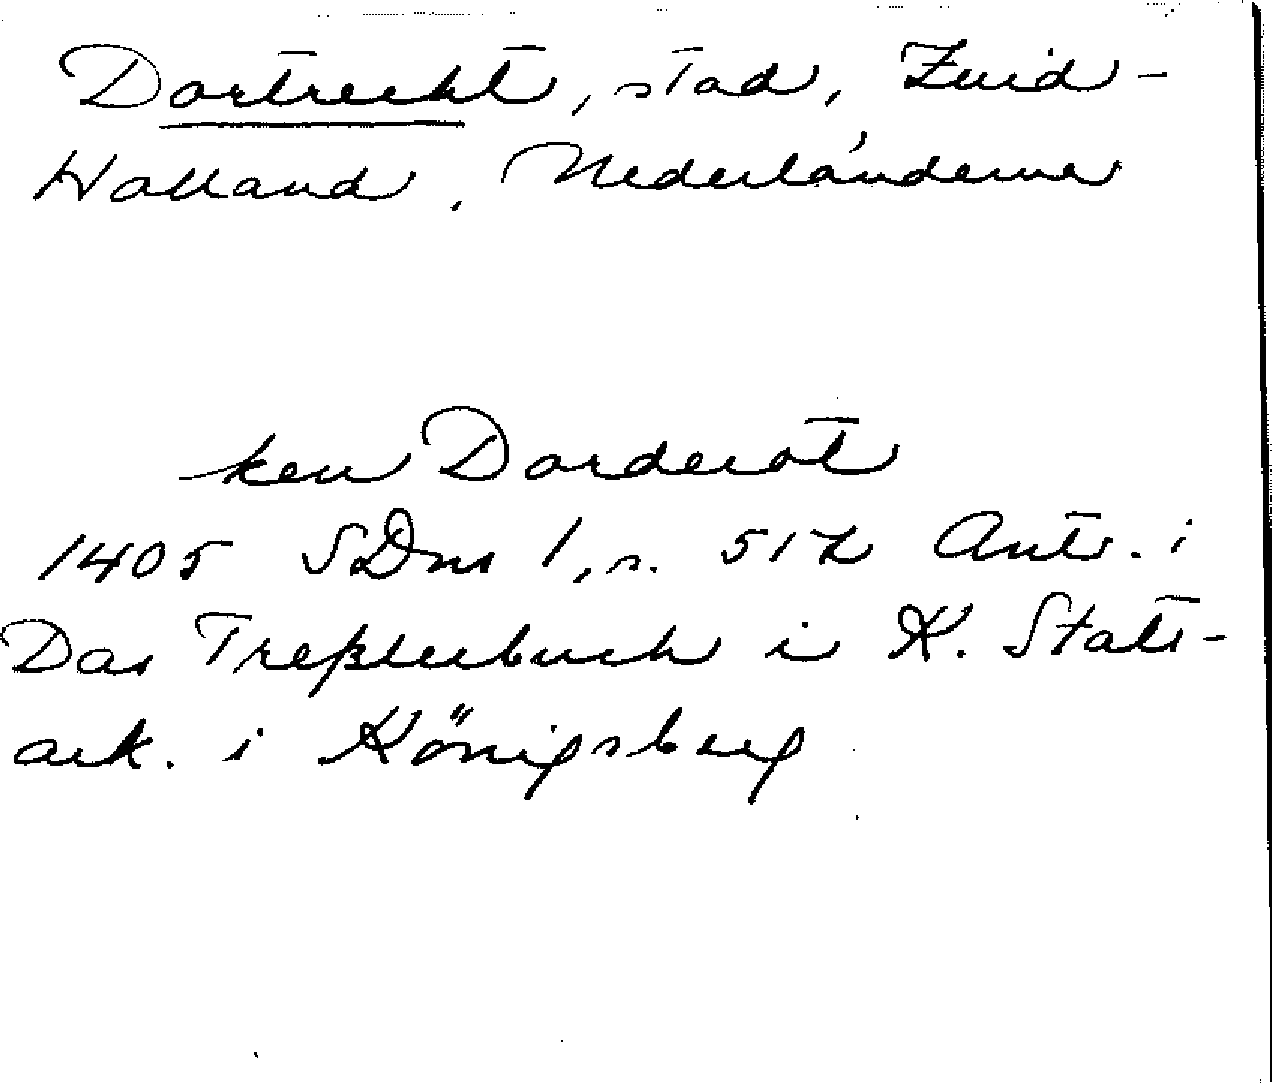 Dortrecht, stad, Zuid-
Holland, Nederländerna
ken Dorderot
1405 SDns 1, s. 512 Ant. i
Das Treßlerbuch i K. Stats-
ark. i Königsberg